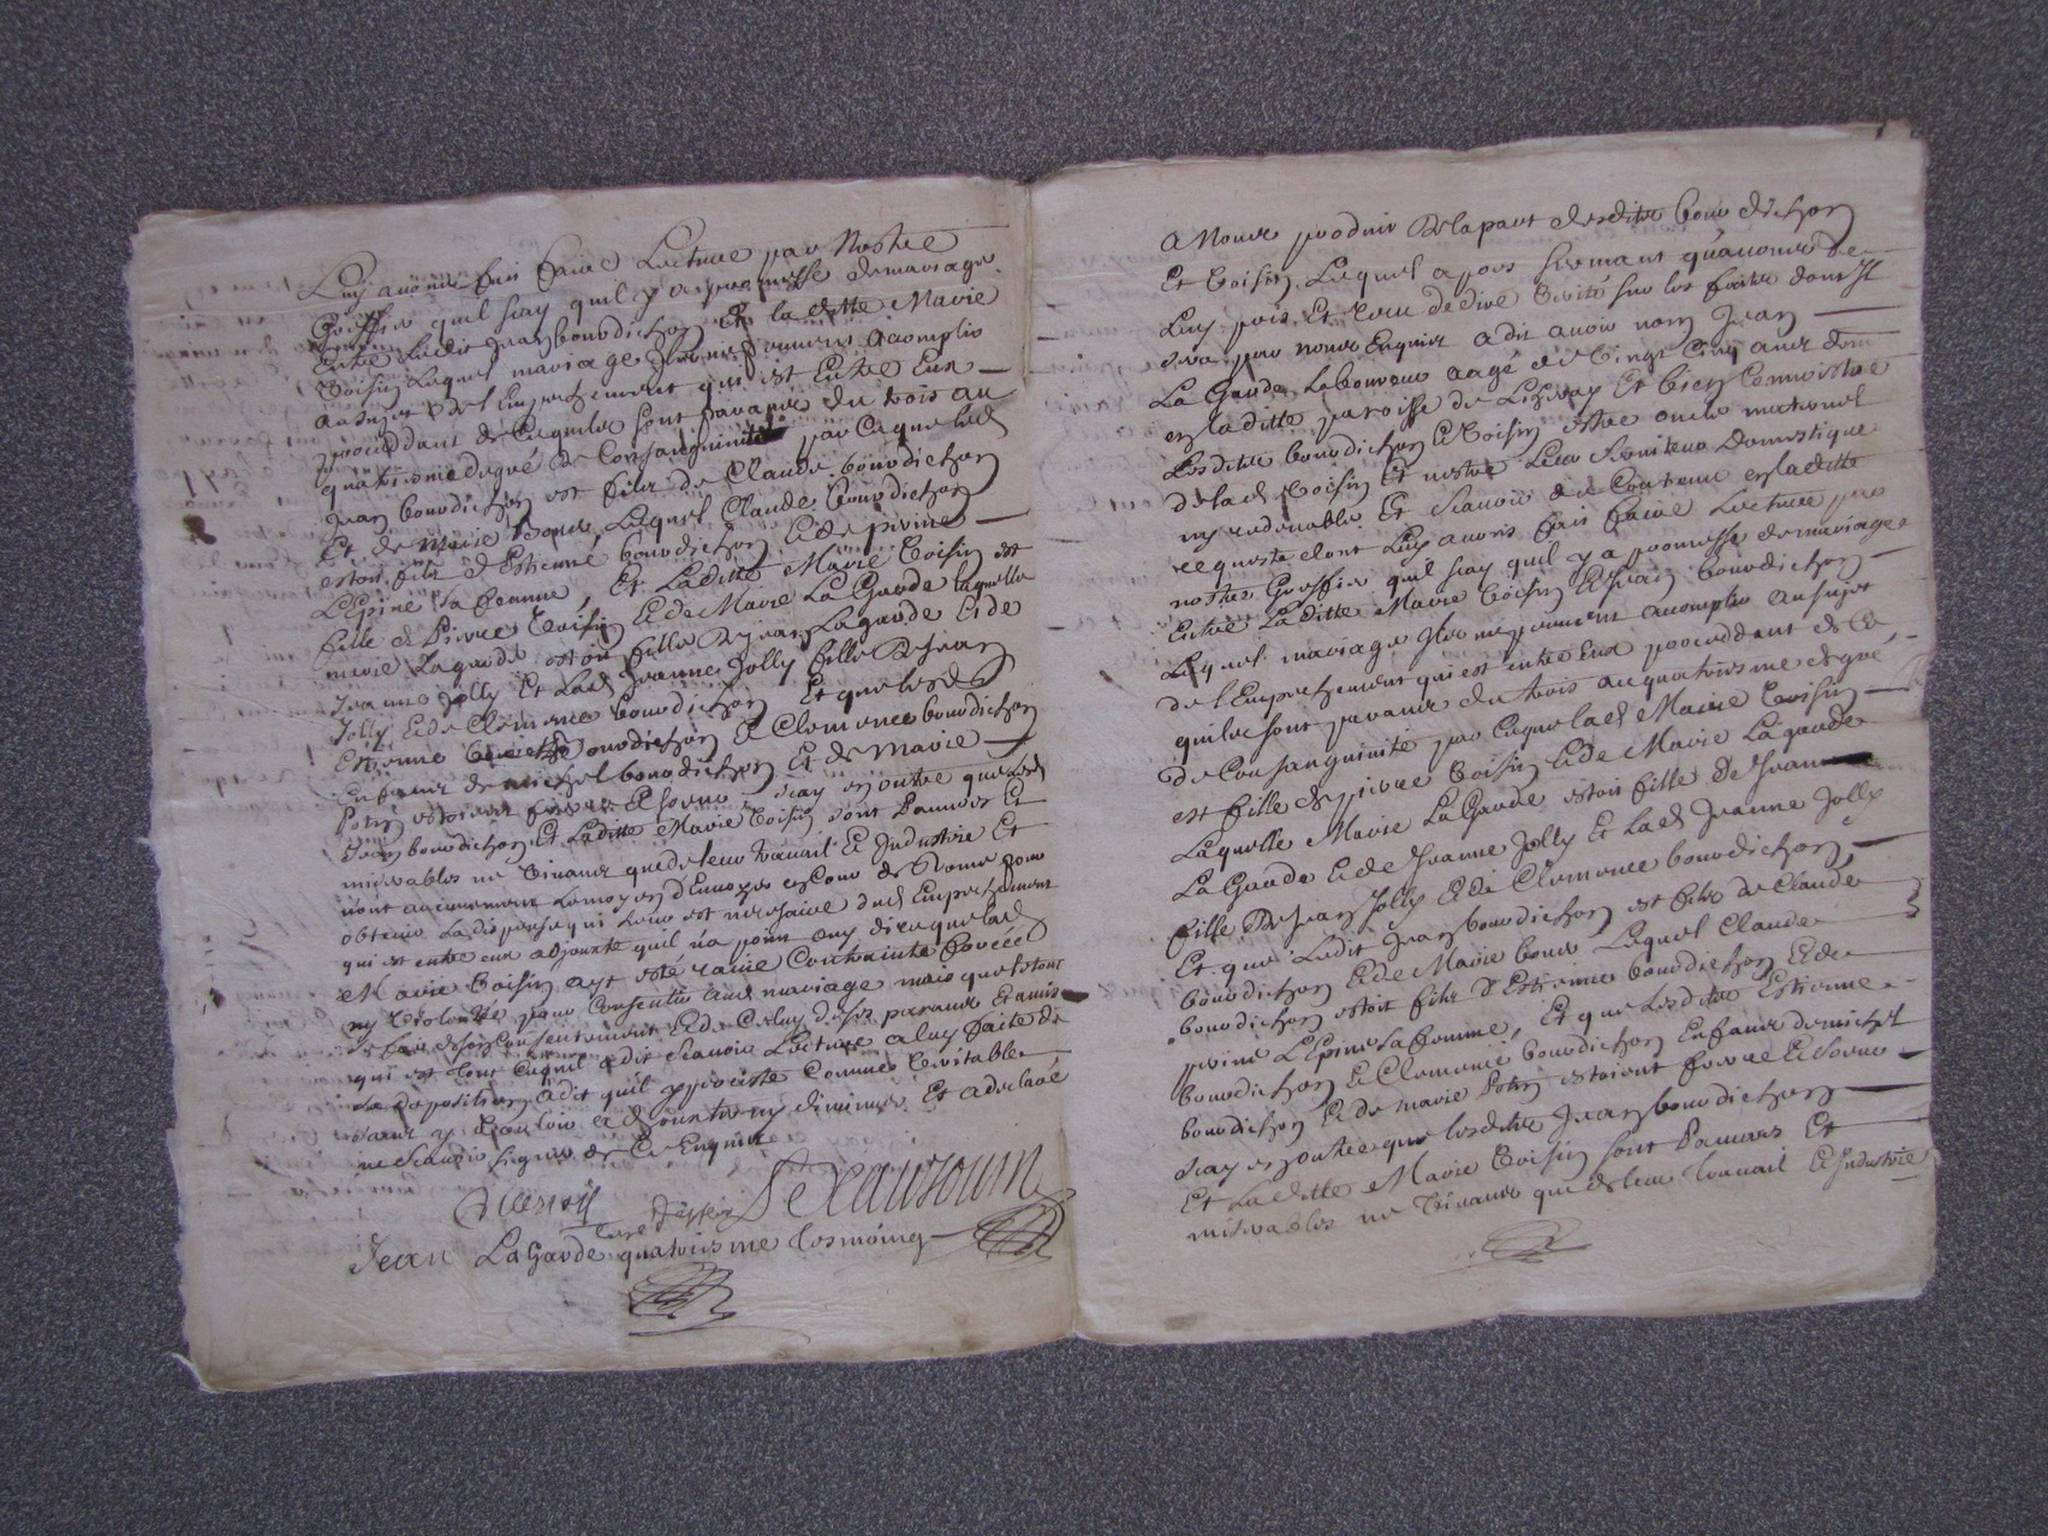 Luy avons fait faire Lecture par Nostre
Greffier quil scay quil y a promesse de mariage
Entre Ledit Jean bourdichon Et la ditte Marie
Voisin Lequel mariage Ils ne peuvent acomplir
au sujet de l'Empeschement qui est Entre Eux
proceddant de Cequils sont parans du trois au
quatriesme degré de Consanguinité par Ceque led
Jean bourdichon est fils de Claude bourdichon
Et de Marie bour Lequel Claude bourdichon
estoit fils d'Estienne bourdichon Et de perine
L'Epine sa femme, Et Laditte Marie Voisin est
fille de Pierre Voisin Et de Marie La Garde laquelle
marie Lagarde estoit fille de Jean Lagarde Et de
Jeanne Jolly Et Lad Jeanne Jolly fille de Jean
Jolly Et de Clemence bourdichon Et que lesd
Estienne bourdichon Et Clemence bourdichon
Enfans de michel bourdichon Et de Marie
Potin estoient frere Et soeur, scay en outre que led
Jean bourdichon Et Laditte Marie Voisin sont Pauvres Et
miserables ne Vivants que de leur travail Et Industrie Et
nont aucunement Lemoyen d'Envoyer en Cour de Rome pour
obtenir La dispense qui Leur est necessaire dud Empeschement
qui est entre eux adjouxte quil n'a point ouy dire que lad
Marie Voisin ayt esté ravie Contrainte forcée
ny Violentée pour Consentir aud mariage mais que le tout
se fait de son Consentement Et de Celuy de ses parans Et amis
qui est tout Cequil a dit scavoir Lecture a luy faite de
sa deposition a dit quil y persiste Comme Veritable
sans y Vouloir adjouxter ny diminuer Et a declaré
ne scavoir signer de Ce Enquis
Jean LaGarde quatriesme tesmoing
A Nous produit de la part desdits bourdichon
Et Voisin Lequel apres serment quavons de
Luy pris Et receu de dire Verité sur les faits dont Il
sera par nous Enquis a dit avoir nom Jean
La Garde Laboureur aagé de Vingt Cinq ans dem
en laditte paroisse de Et bien Connoistre
Lesdits bourdichon Et Voisin estre oncle maternel
de lad Voisin Et nestre Leur serviteur Domestique
ny redevable Et scavoir le Contenu en laditte
requeste dont Luy avons fait faire Lecture par
nostre Greffier quil scay quil y a promesse de mariage
Entre Laditte Marie Voisin Et Jean bourdichon
Lequel mariage Ils ne peuvent acomplir au sujet
de l'Empeschement qui est entre Eux proceddant de Ce
quils sont parans du trois au quatriesme degré
de Consanguinité par Ceque lad Marie Voisin
est fille de pierre Voisin Et de Marie Lagarde
Laquelle Marie LaGarde estoit fille de Jean
La Garde Et de Jeanne Jolly Et lad Jeanne Jolly
fille de Jean Jolly Et de Clemence bourdichon
Et que Ledit Jean bourdichon est fils de Claude
bourdichon Et de Marie bour Lequel Claude
bourdichon estoit fils d'Estienne bourdichon Et de
perine L'Epine sa femme, Et que lesdits Estienne
bourdichon Et Clemence bourdichon Enfans de michel
bourdichon Et de marie Potin estoient frere Et soeur
scay en outre que lesdits Jean bourdichon
Et La ditte Marie Voisin sont Pauvres Et
miserables ne Vivants que de leur travail Et Industrie